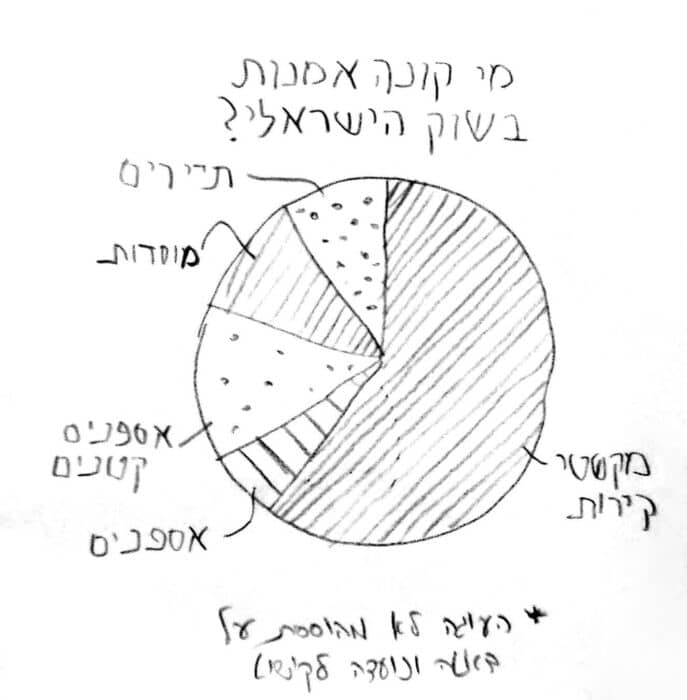 מי קונה אמנות
בשוק הישראלי?
תיירים
מוסדות
אספנים
קטנים
אספנים
מקשטי
קירות
* העוגה לא מבוססת על
ונועדה